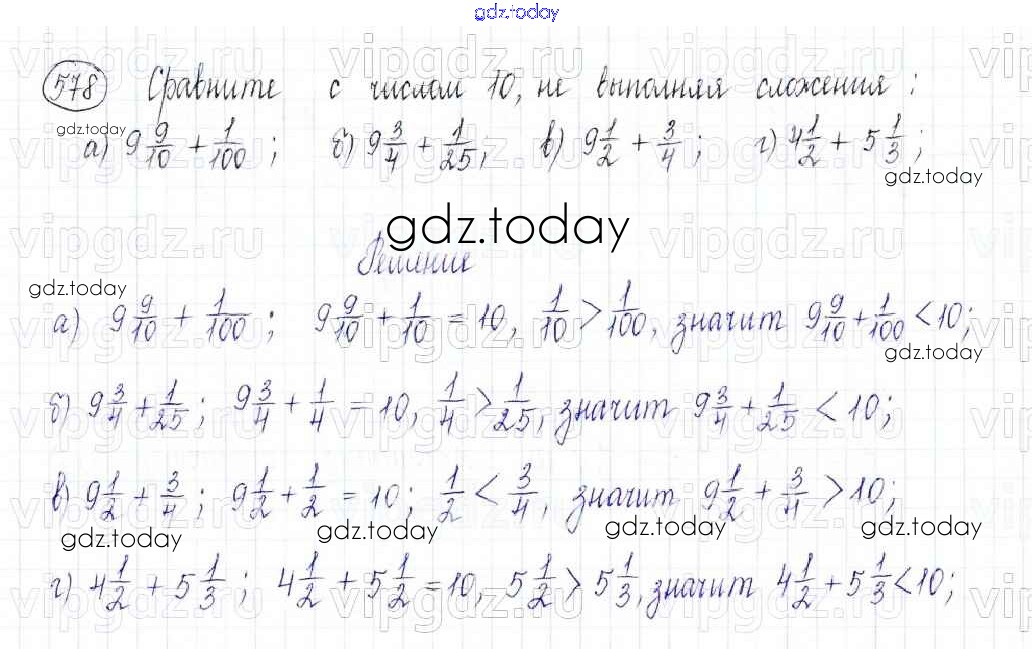 gdz.today
578 Сравните с числом 10, не выполняя сложения:
gdz.today
а) 9 9/10 + 1/100; б) 9 3/4 + 1/25; в) 9 1/2 + 3/4; г) 4 1/2 + 5 1/3;
gdz.today
gdz.today
Решение
gdz.today
а) 9 9/10 + 1/100; 9 9/10 + 1/10 = 10, 1/10 > 1/100, значит 9 9/10 + 1/100 < 10;
gdz.today
б) 9 3/4 + 1/25; 9 3/4 + 1/4 = 10, 1/4 > 1/25, значит 9 3/4 + 1/25 < 10;
в) 9 1/2 + 3/4; 9 1/2 + 1/2 = 10; 1/2 < 3/4, значит 9 1/2 + 3/4 > 10;
gdz.today gdz.today gdz.today gdz.today
г) 4 1/2 + 5 1/3; 4 1/2 + 5 1/2 = 10, 5 1/2 > 5 1/3, значит 4 1/2 + 5 1/3 < 10;
vipgdz.ru